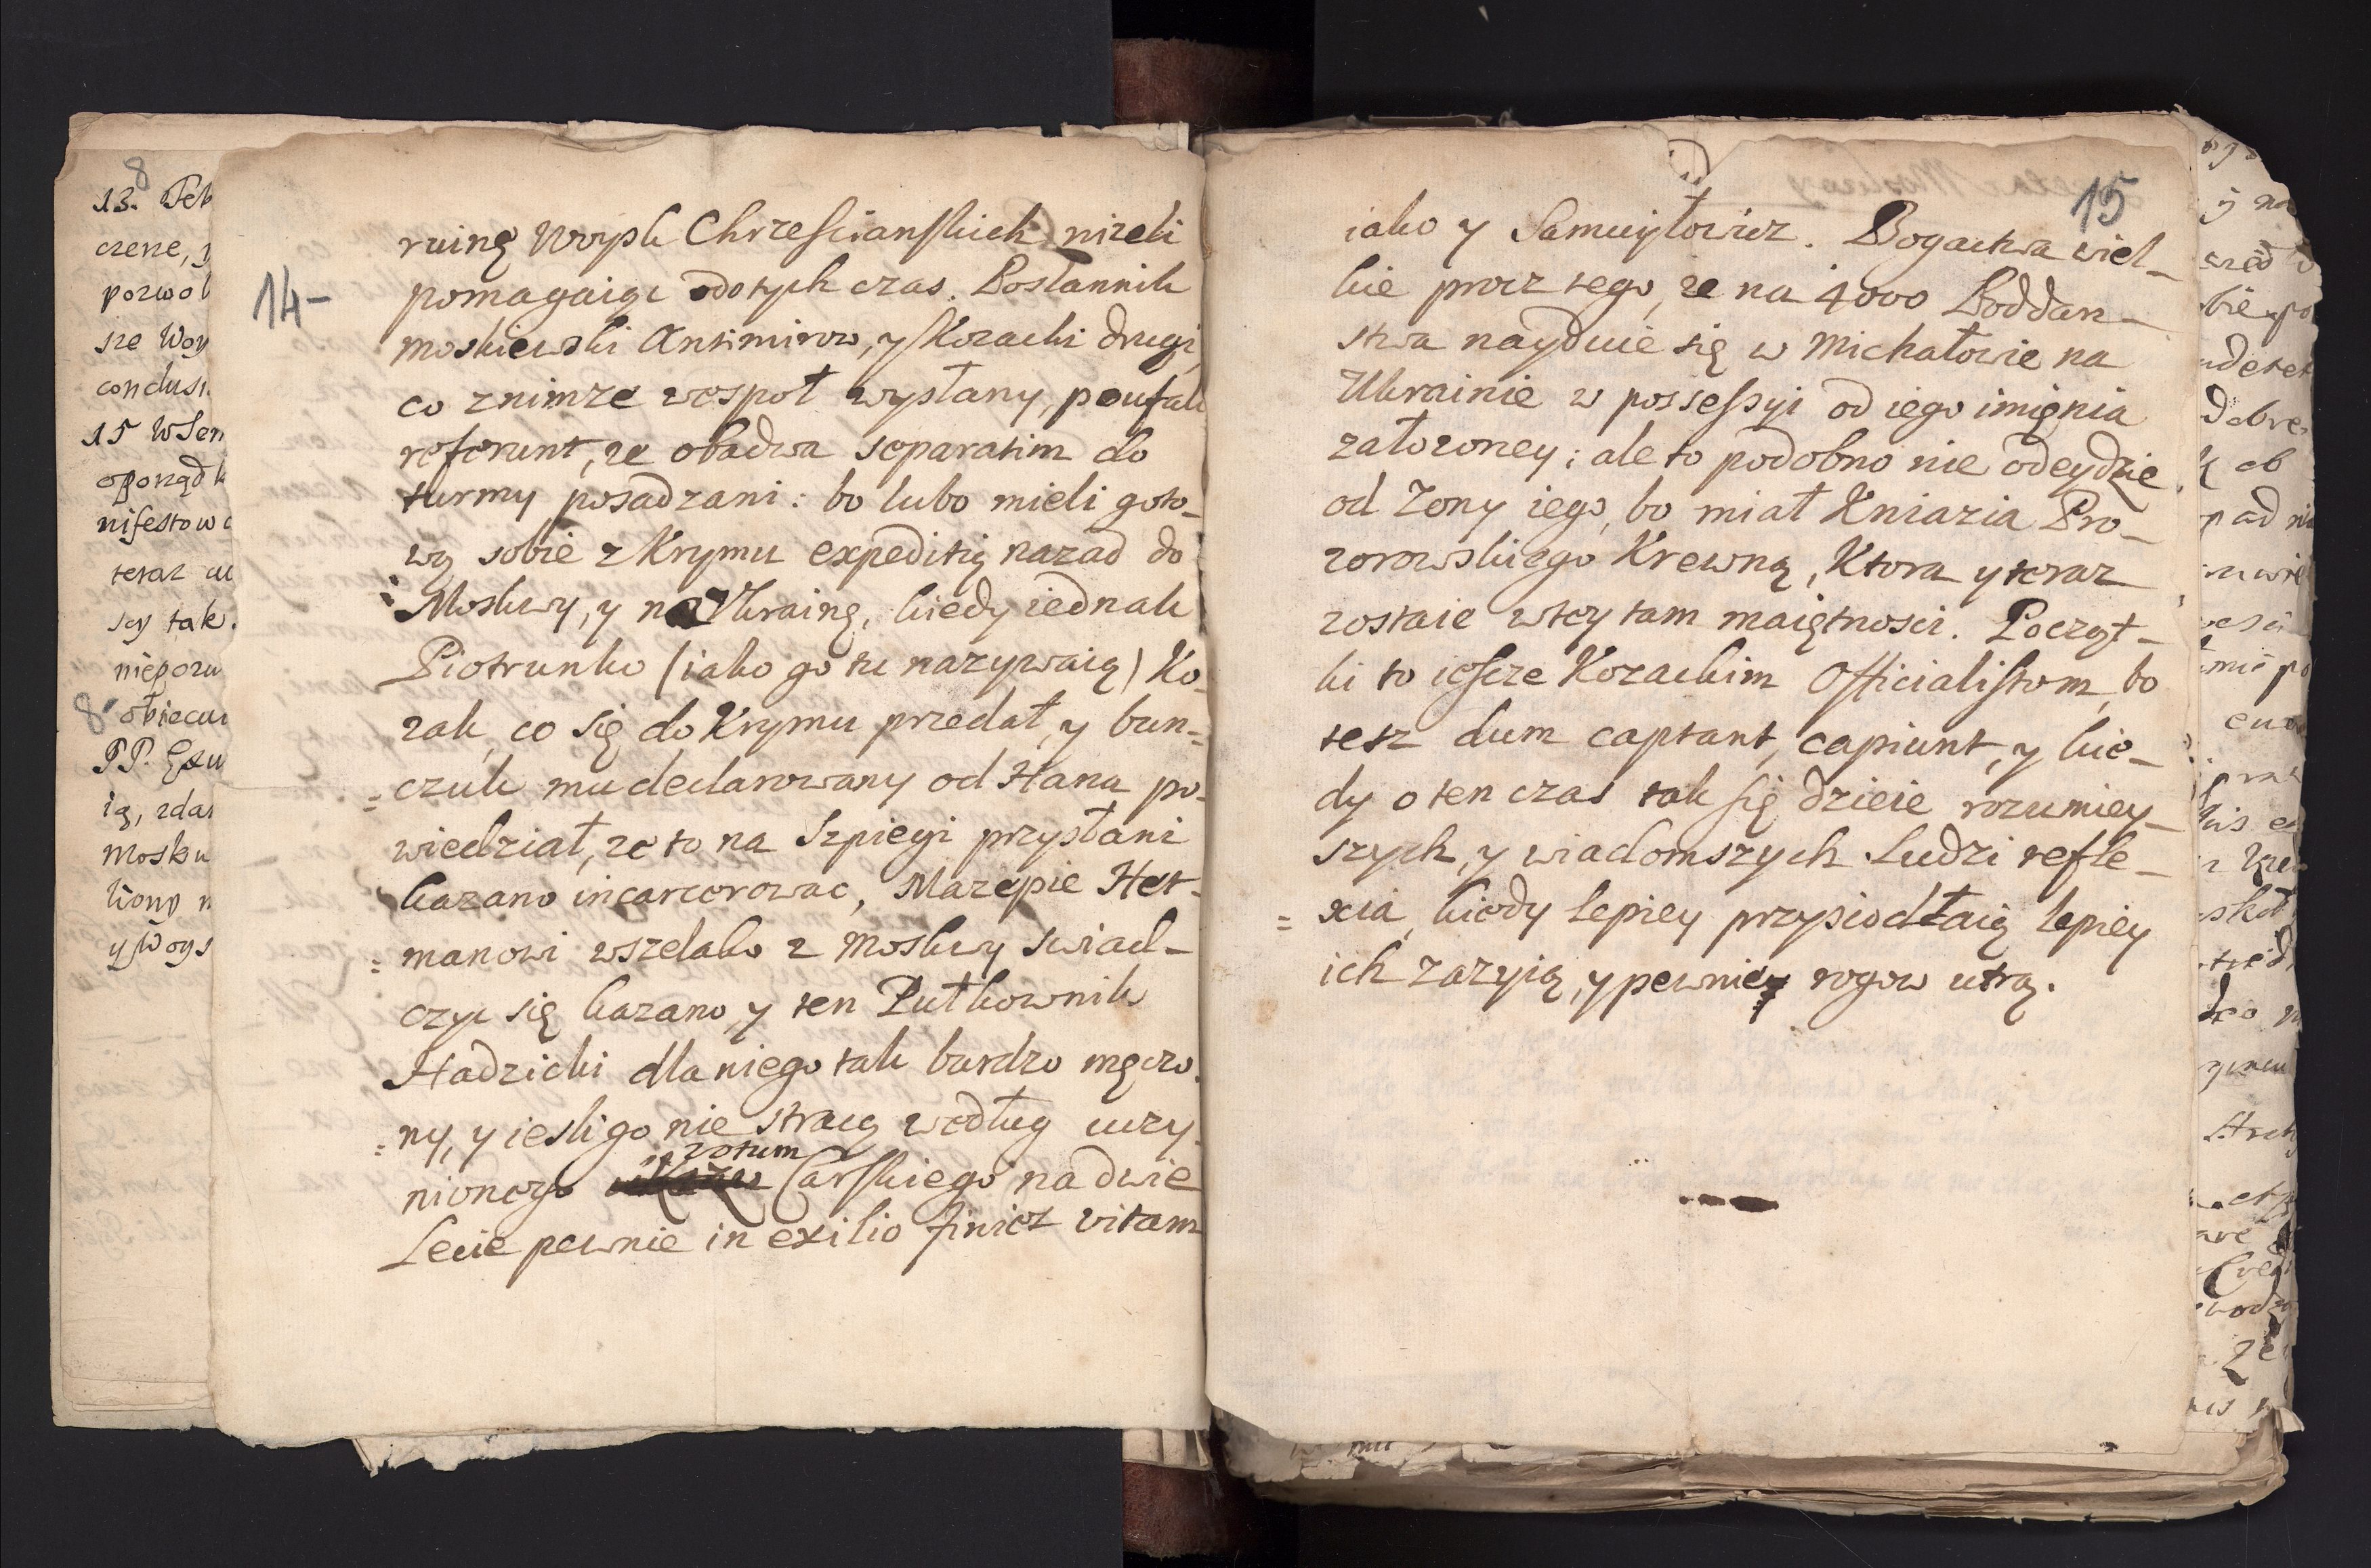 14-
ruinę Woysk Chrzescianskich nizeli
pomagaiąc dotych czas. Posłannik
moskiewski Antimirow, y Kozacki drugi,
co znimze wespoł wysłany, poufale
referunt, ze obadwa separatim do
turmy posadzani: bo lubo mieli goto-
wą sobie z Krymu expeditią nazad do
Moskwy, y na Ukrainę, kiedy iednak
Piotrunko (iako go tu nazywaią) Ko-
zak, co się do Krymu przedał, y bun-
=czuk mu declarowany od Hana po-
wiedział, ze to na Szpiegi przysłani
kazano incarcerowac, Mazepie Het-
=manowi wszelako z Moskwy swiad-
czyc się kazano, y ten Pułkownik
Hadzicki dla niego tak bardzo męczo-
=ny, y iesli go nie stracą według uczy-
nionego votum Carskiego na dwie
Lecie pewnie in exilio finiet vitam
15
iako y Samuyłowicz. Bogactwa wiel-
kie procz tego, ze na 4000 Poddan-
stwa nayduie się w Michałowie na
Ukrainie w possessyi od iego imięnia
załozoney; ale to podobno nie odeydzie
od Zony iego, bo miał Kniazia Pro-
zorowskiego Krewną, Ktora y teraz
zostaie w tey tam maiętnosci. Poczęt-
ki to iescze Kozackim Officialistom, bo
tesz dum captant, capiunt, y kie-
dy o ten czas tak się dzieie rozumiey-
szych, y wiadomszych Ludzi refle-
=xia, kiedy lepiey przysiodłaią lepiey
ich zazyią, y pewnie rogow utrą.
13.
czene,
conclusi
15
teraz
sey tak.
8
8
PP.